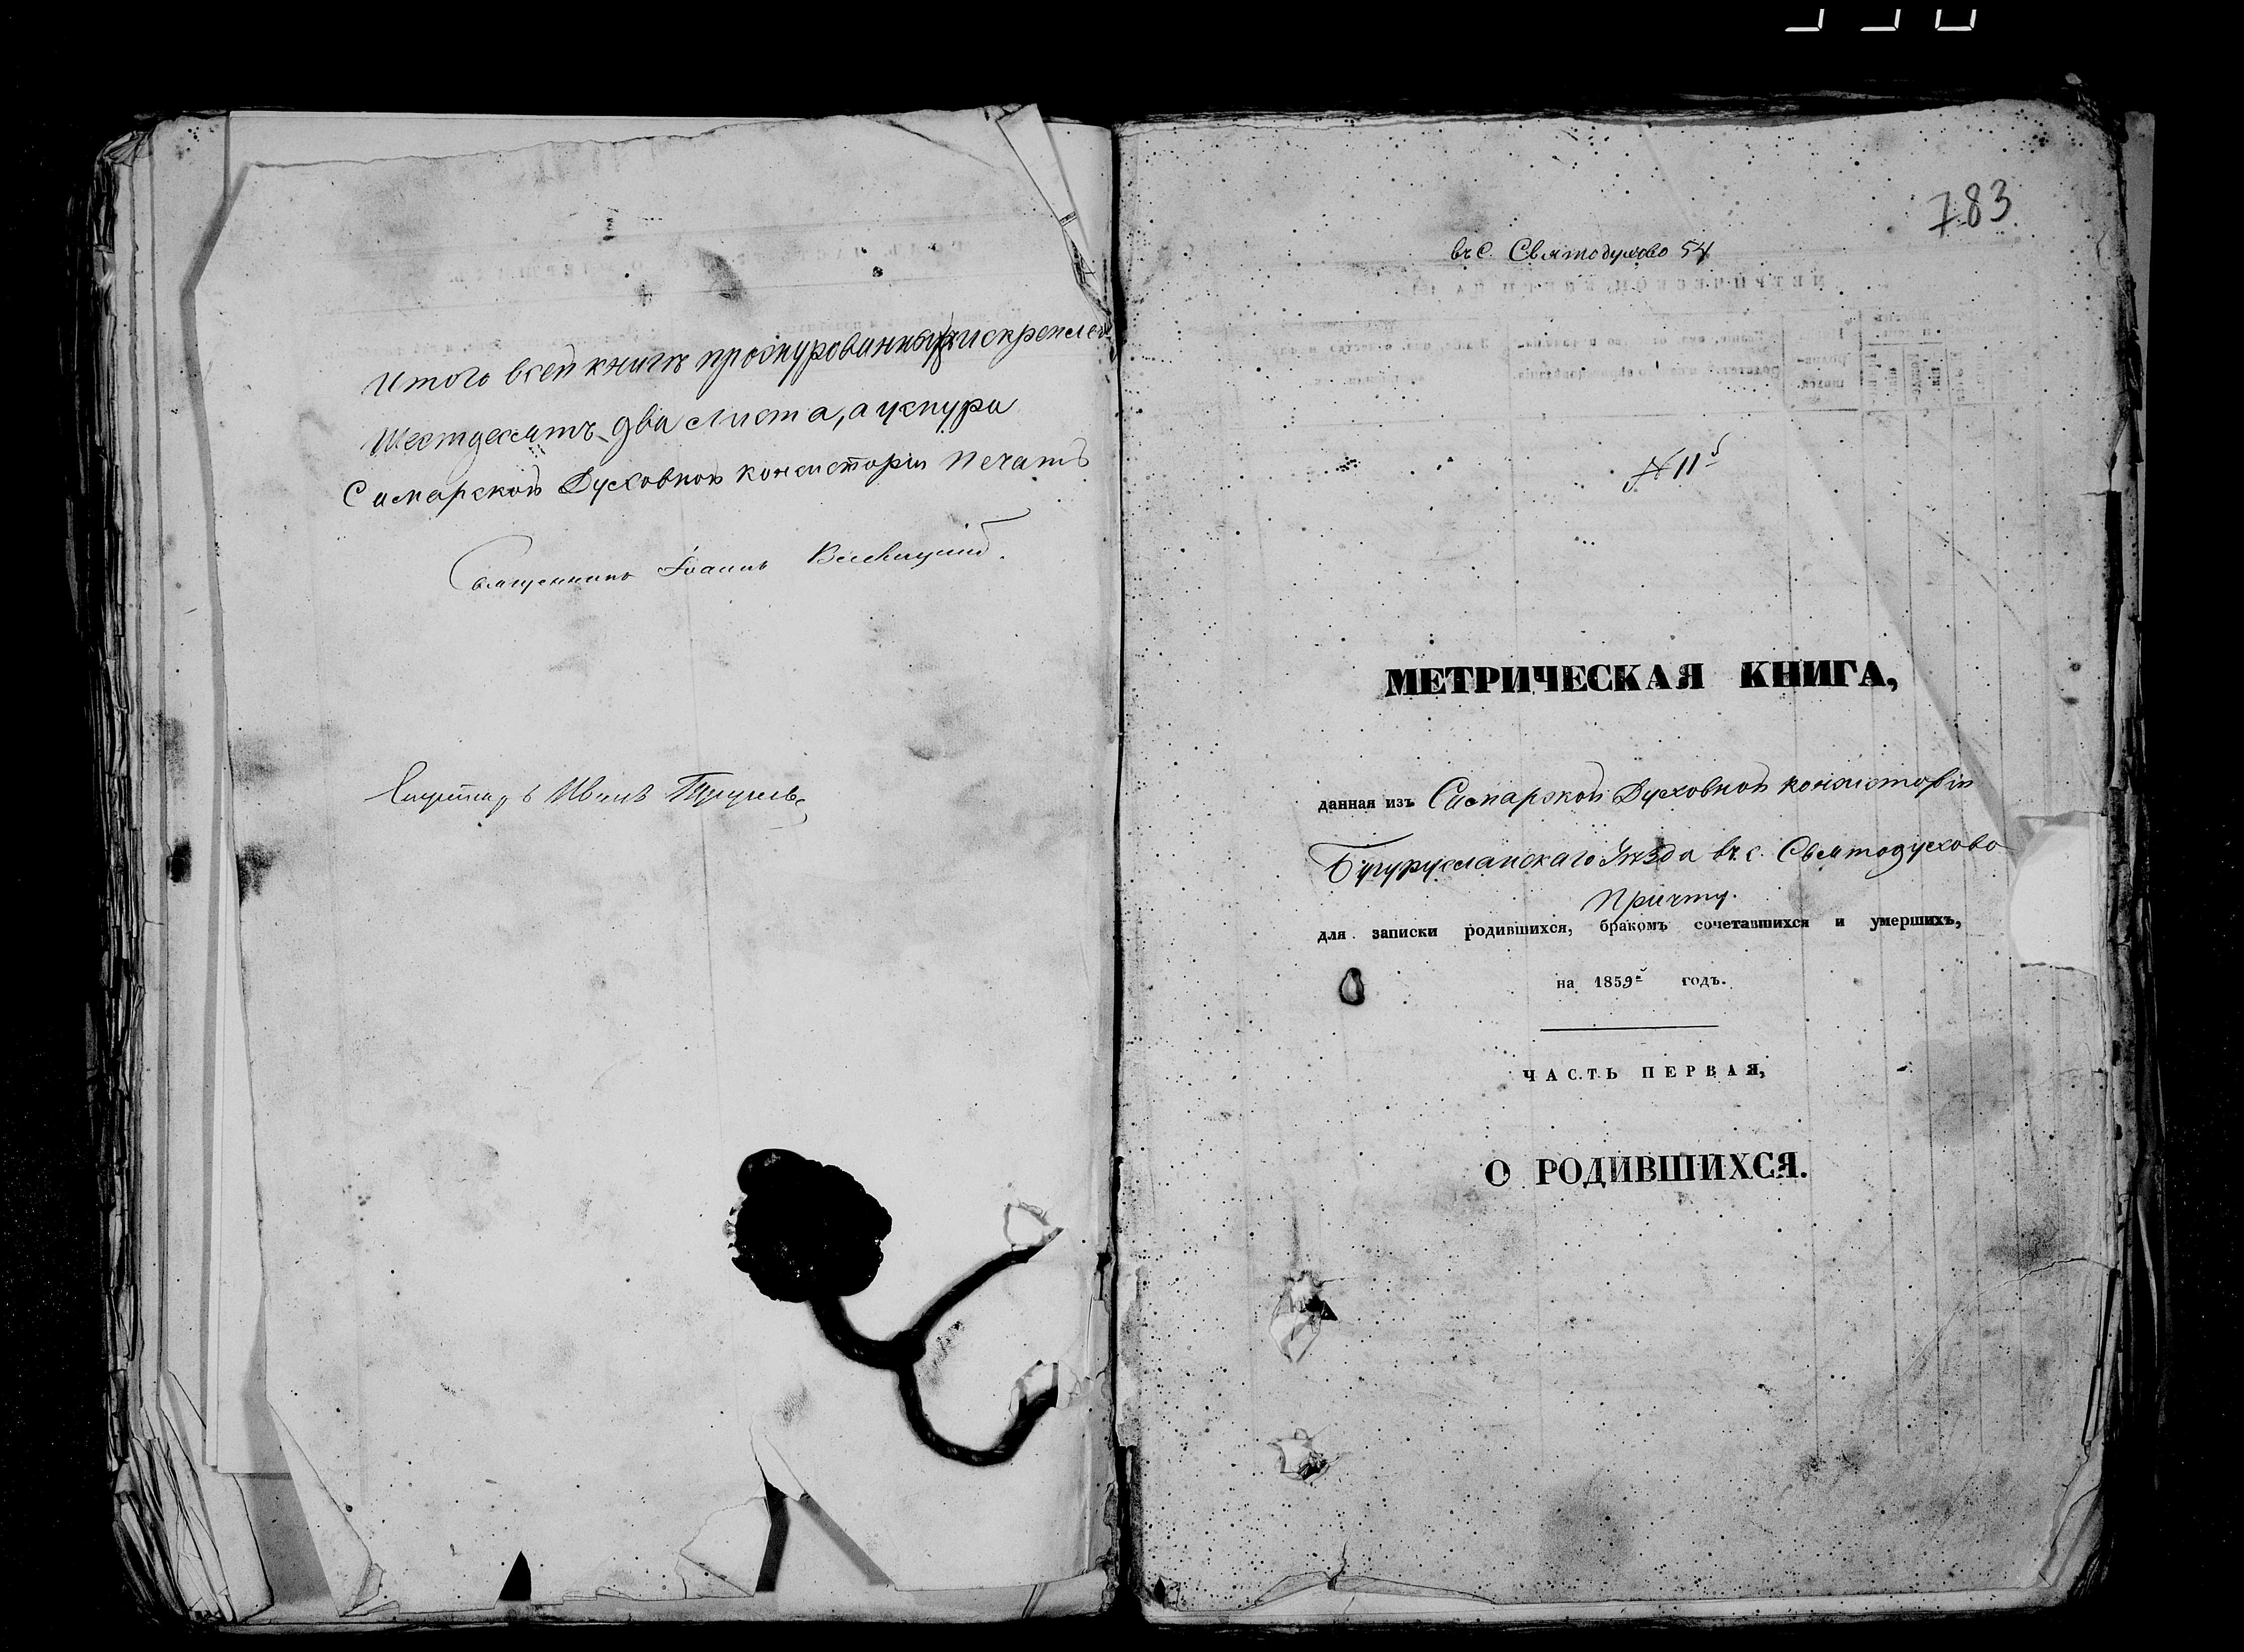 Итого всей книгѣ прошнурованныхъ и скреплен
Шестдесятъ два листа, а у снура
Самарской Духовной консисторіи печать
Священникъ Іоаннъ
Секретарь Иванъ
783
въ с. Святодухово 54
№ 11й
МЕТРИЧЕСКАЯ КНИГА,
данная изъ Самарской Духовной консисторіи
Бугурусланскаго Уѣзда въ с. Святодухово
Причту.
для записки родившихся, бракомъ сочетавшихся и умершихъ,
на 1859й годъ.
ЧАСТЬ ПЕРВАЯ,
О РОДИВШИХСЯ.